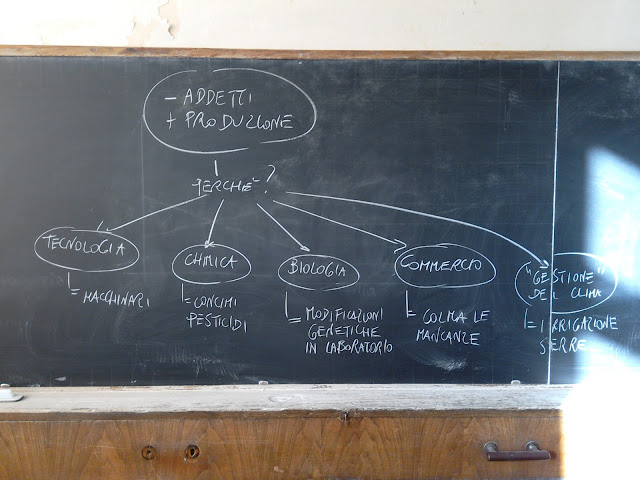 - ADDETTI
+ PRODUZIONE
PERCHE' ?
TECNOLOGIA
= MACCHINARI
CHIMICA
= CONCIMI
PESTICIDI
BIOLOGIA
= MODIFICAZIONI
GENETICHE
IN LABORATORIO
COMMERCIO
= COLMA LE
MANCANZE
"GESTIONE"
DEL CLIMA
= IRRIGAZIONE
SERRE